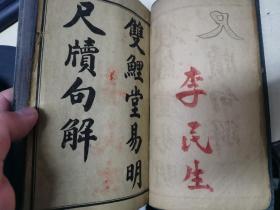 雙鯉堂易明
尺牘句解
李民生